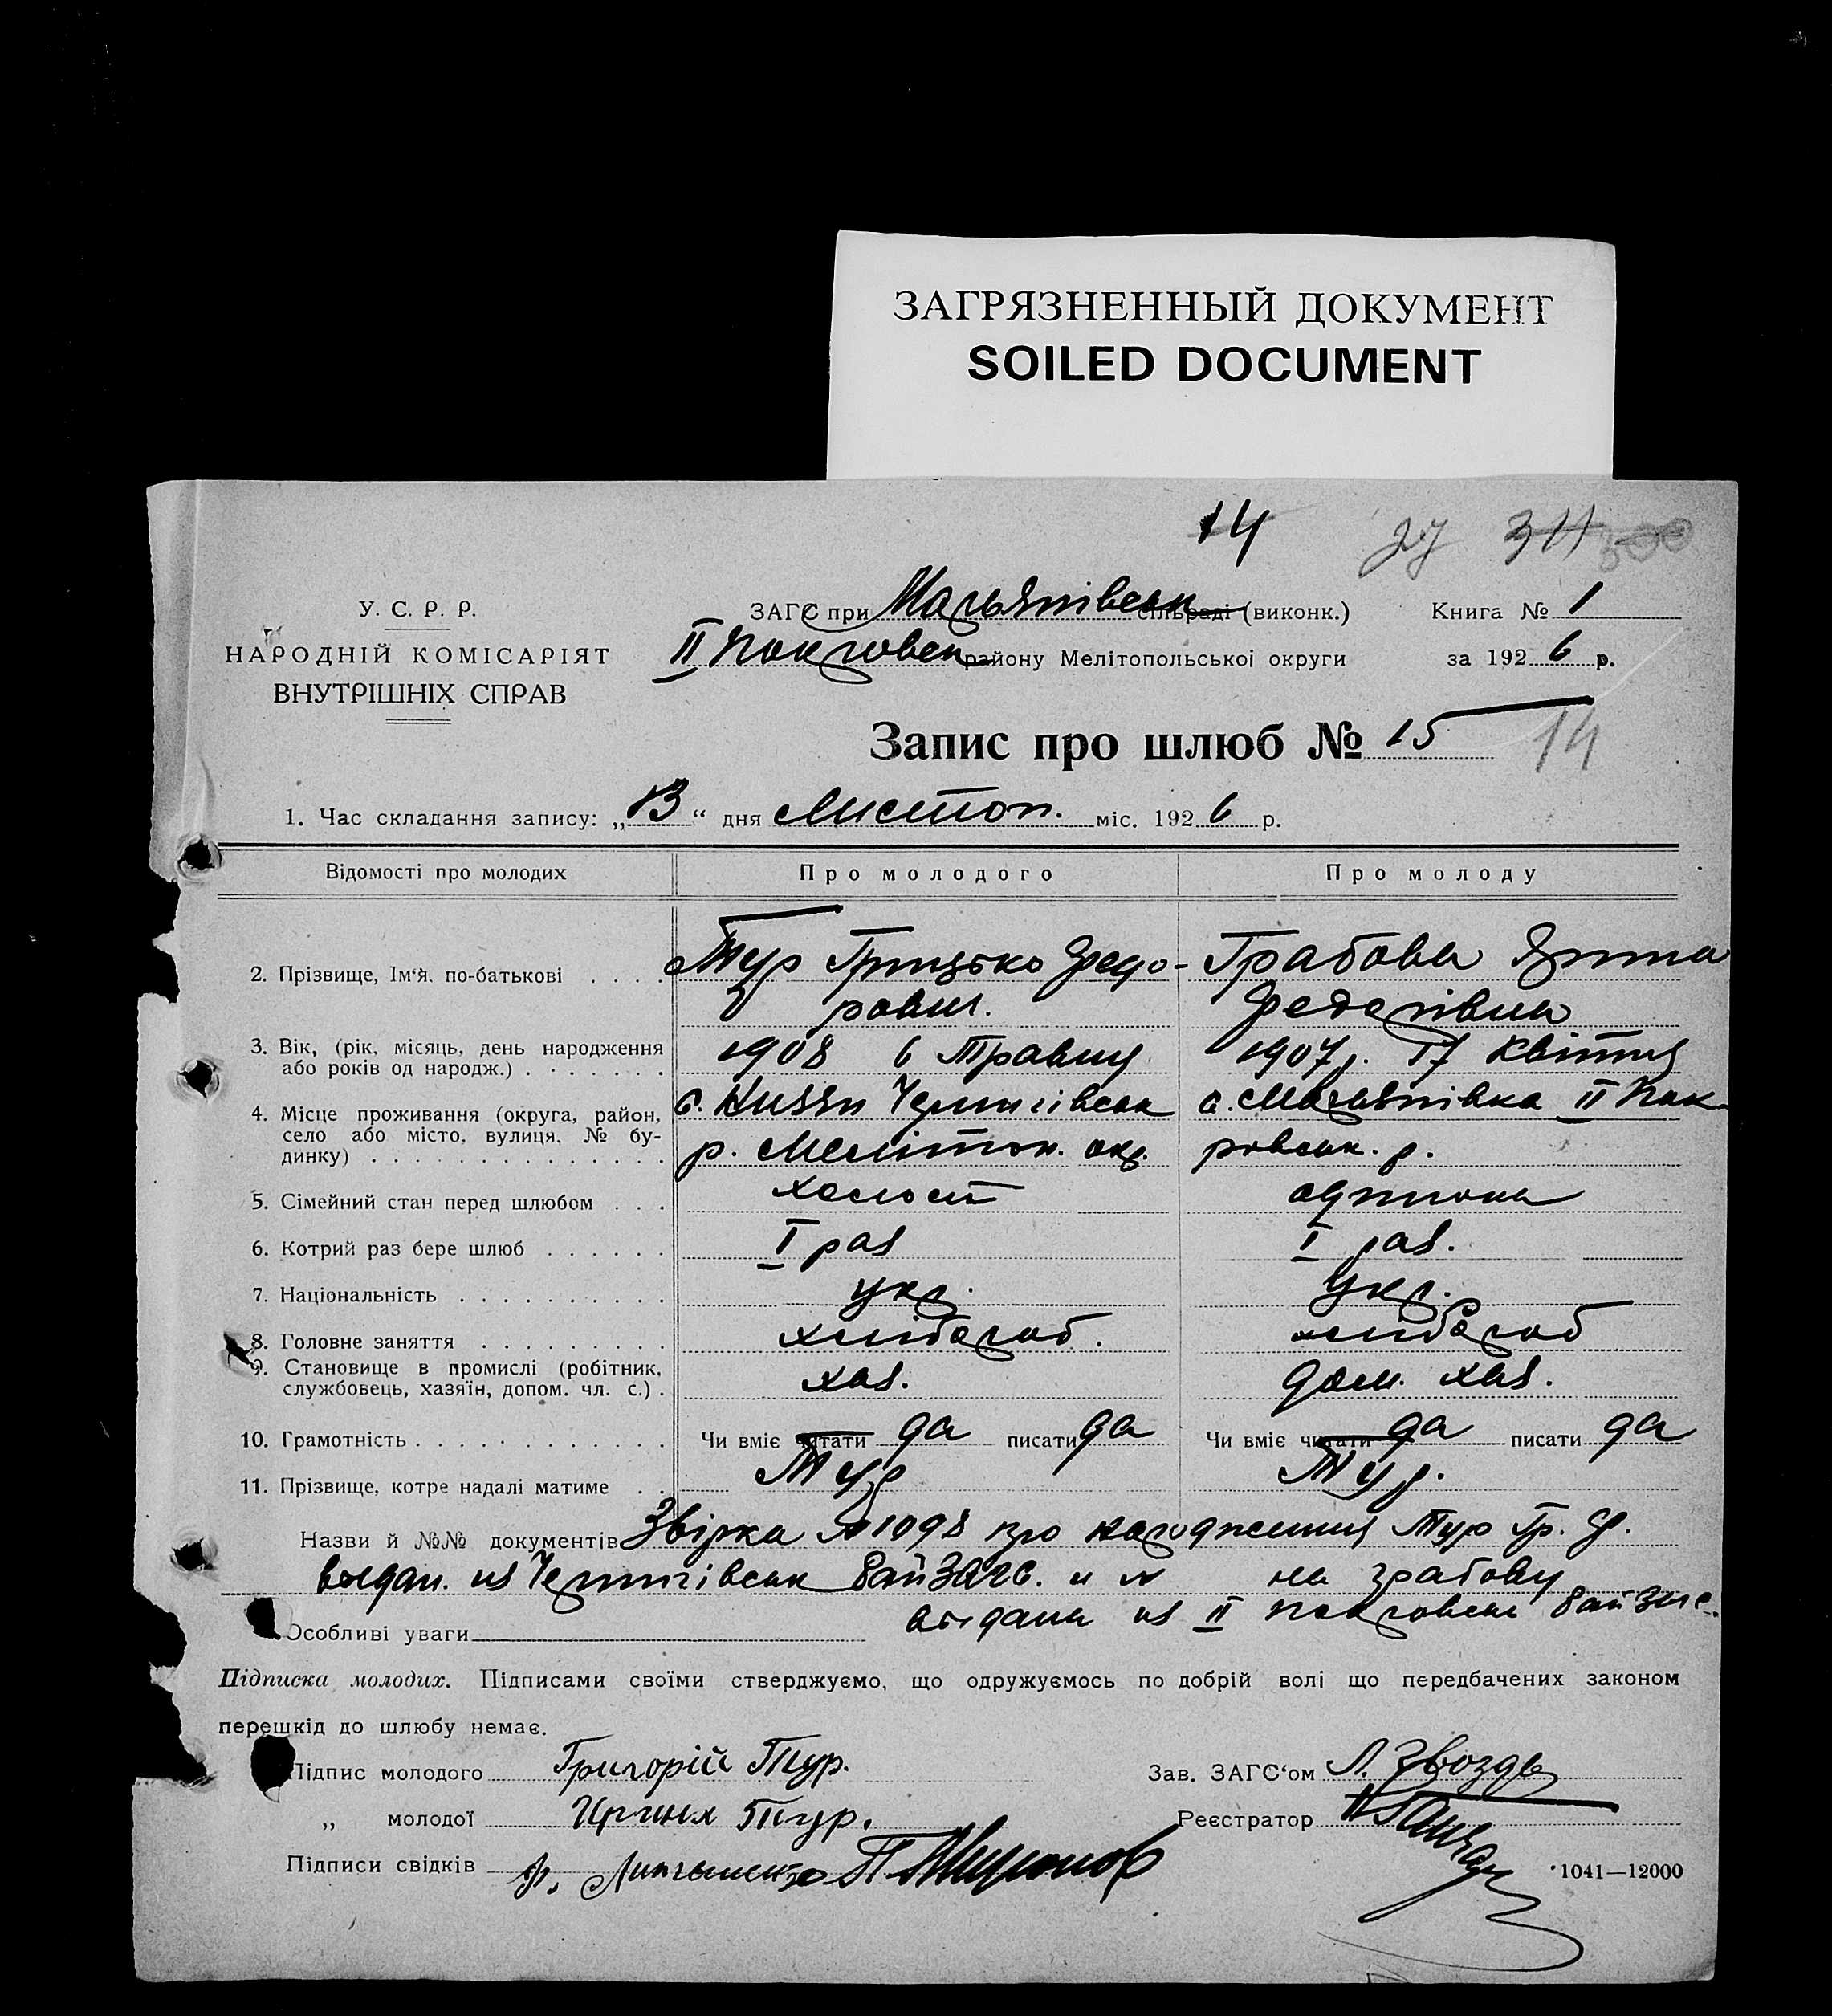 ЗАГРЯЗНЕННЫЙ ДОКУМЕНТ
SOILED DOCUMENT
14 27 311 300
У. С. Р. Р.
НАРОДНІЙ КОМІСАРІЯТ
ВНУТРІШНІХ СПРАВ
ЗАГС при сільраді (виконк.) Книга № 1
II Покровськ району Мелітопольської округи за 1926 р.
Запис про шлюб № 15 14
1. Час складання запису: „13“ дня Листоп. міс. 1926 р.
Відомості про молодих Про молодого Про молоду
2. Прізвище, Ім‘я, по-батькові Тур Грицько Федо- Грабова Ярина
рович. Федорівна
3. Вік, (рік, місяць, день народження 1908 6 Травня 1907 р. 17 Квітня
або років од народж.)
4. Місце проживання (округа, район, с. Чернигівськ с. II Пок-
село або місто, вулиця, № бу-
динку) р. Мелітоп. окр. ровськ. р.
5. Сімейний стан перед шлюбом холост
6. Котрий раз бере шлюб I раз I раз.
7. Національність укр. Укр.
8. Головне заняття хлібороб. хлібороб
9. Становище в промислі (робітник, хаз. дом. хаз.
службовець, хазяїн, допом. чл. с.)
10. Грамотність Чи вміє читати да писати да Чи вміє читати да писати да
11. Прізвище, котре надалі матиме Тур Тур.
Назви й №№ документів Звірка № 1098 про народження Тур Гр. Ф.
выдан. из Чернигівськ РайЗАГС. и № на Грабову
выдана из II Покровськ РайЗагс.
Особливі уваги
Підписка молодих. Підписами своїми стверджуємо, що одружуємось по добрій волі що передбачених законом
перешкід до шлюбу немає.
Підпис молодого Григорій Тур. Зав. ЗАГС‘ом Л. Звоздь
„ молодої Ирина Тур. Реєстратор
Підписи свідків 1041—12000